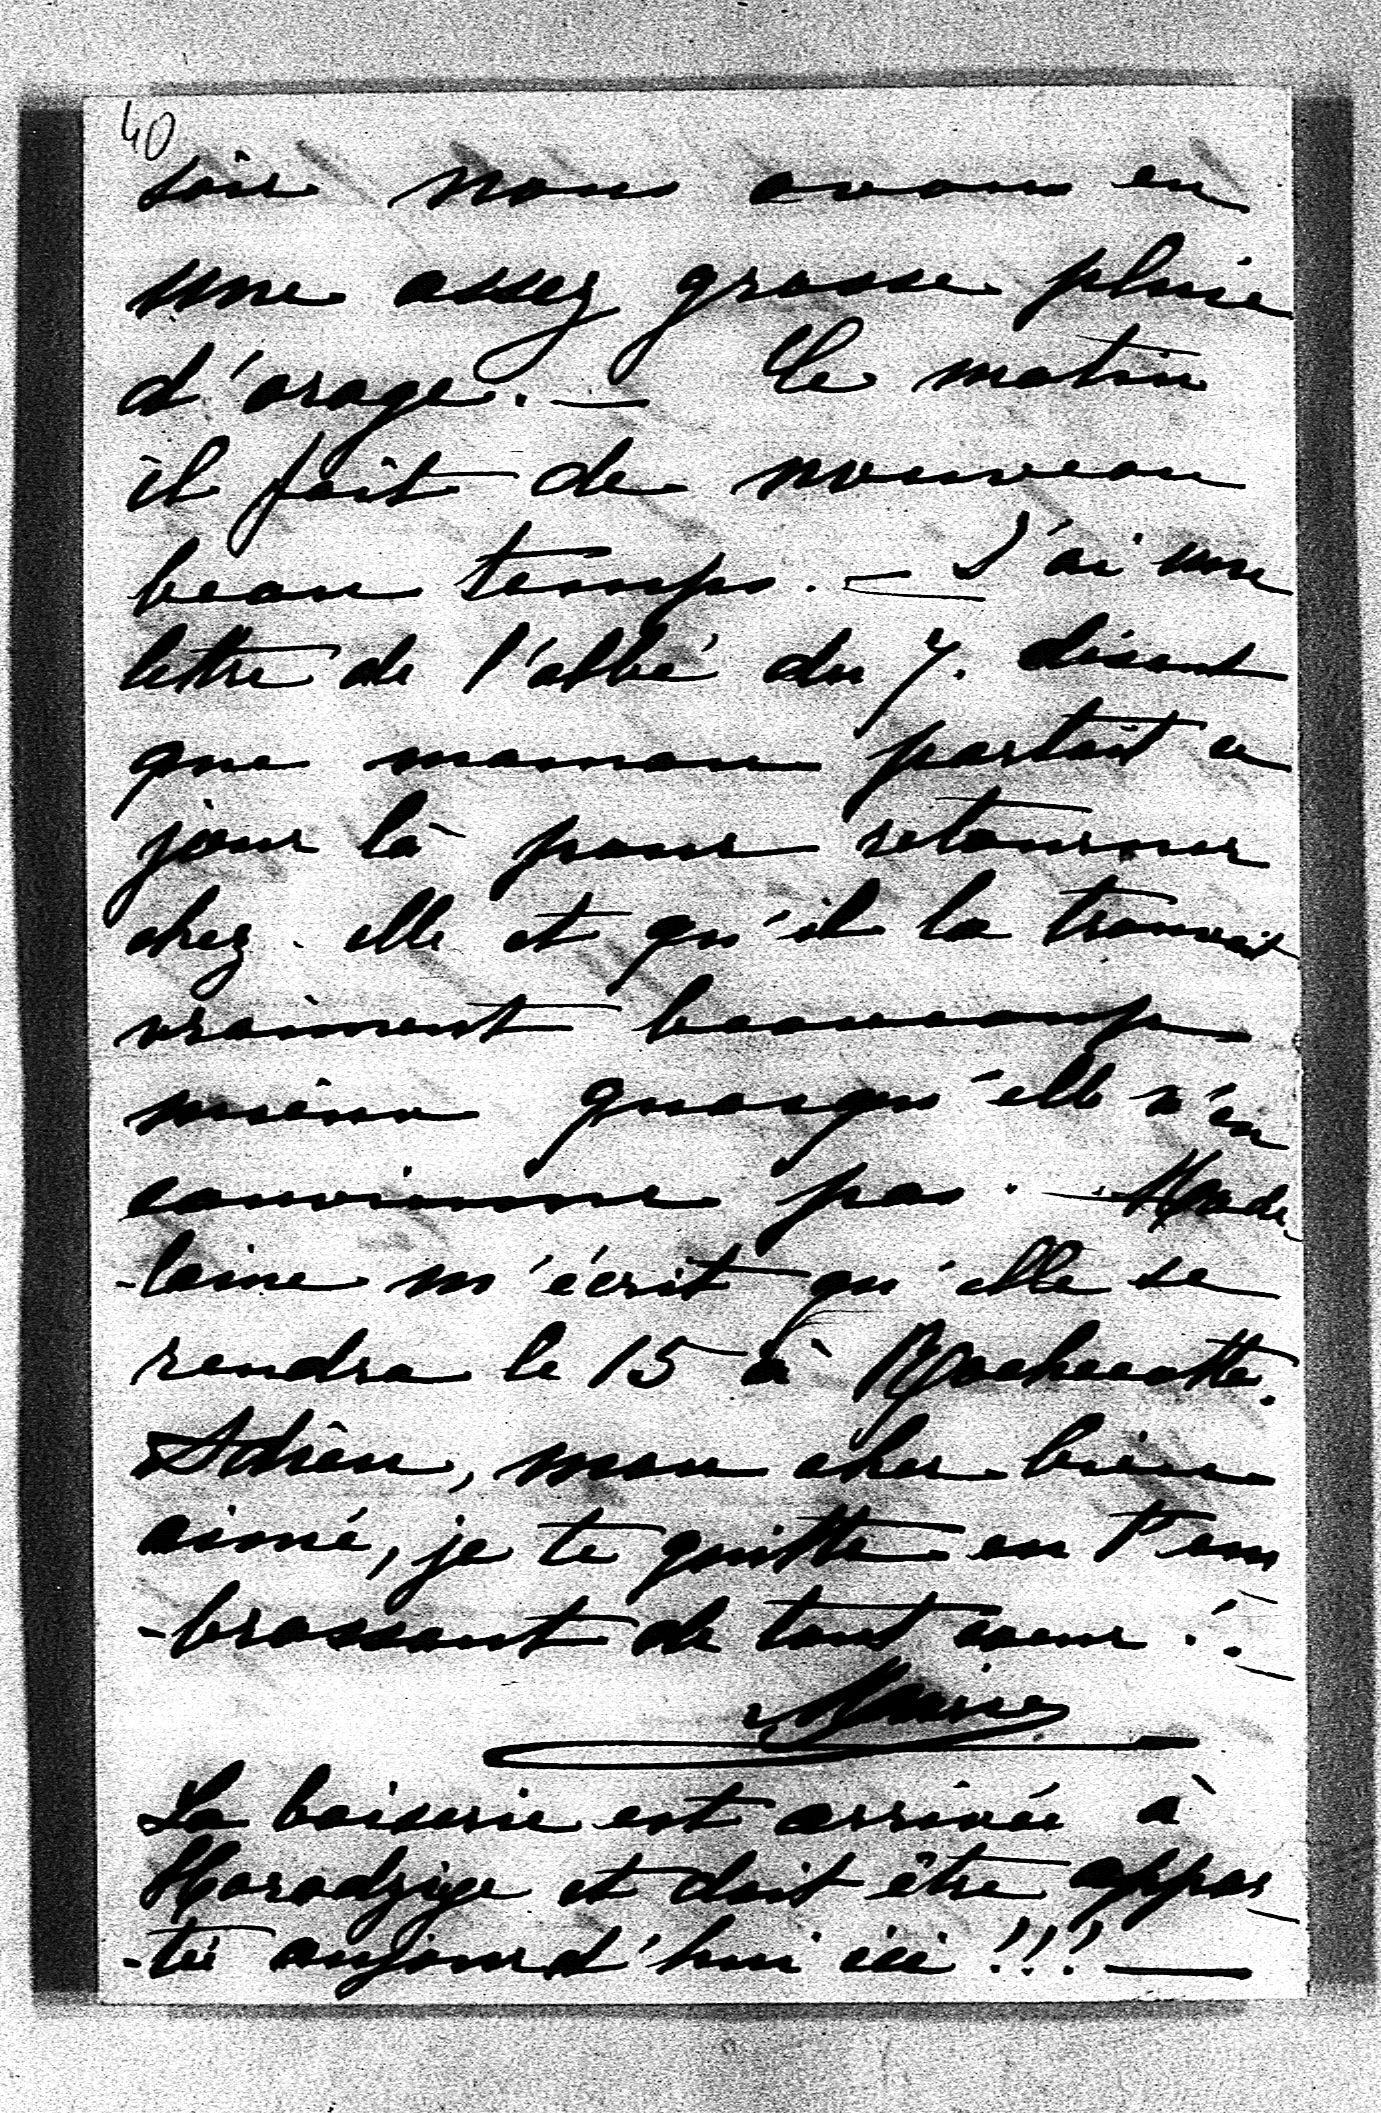 40
soir nous avons eu
une assez grosse pluie
d'orage. — Ce matin
il fait de nouveau
beau temps. — J'ai une
lettre de l'abbé du 7. disant
que maman partait ce
jour là pour retourner
chez elle et qu'il la trouvait
vraiment beaucoup
mieux quoiqu'elle n'en
convienne pas. — Made
-laine m'écrit qu'elle se
rendra le 15 à Rochecotte.
Adieu, mon cher bien
aimé, je te quitte en t'em
-brassant de tout coeur !.
Marie
La boiserie est arrivée à
Horodzige et doit être appor
-tée aujourd'hui ici !!! —